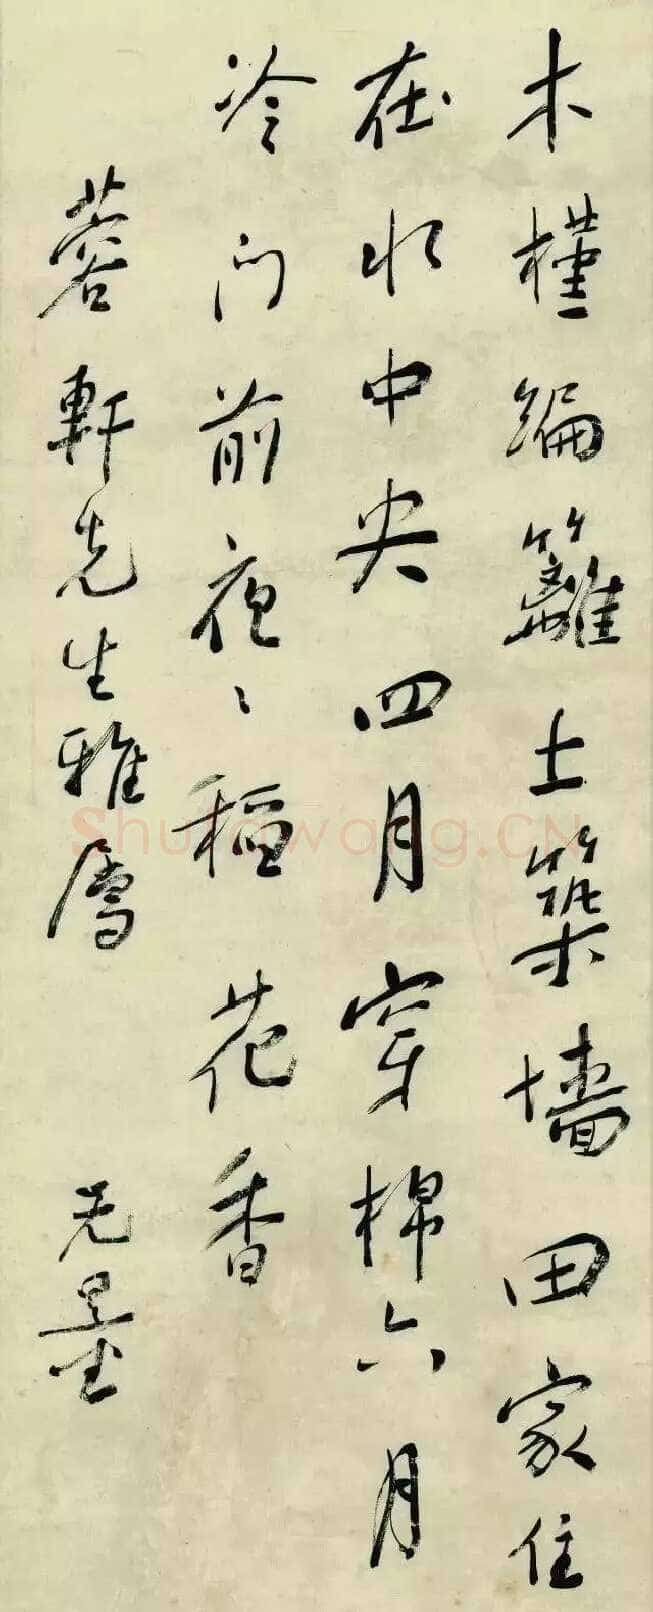 木槿编籬土築墙田家住
在水中央四月穿棉六月
冷门前夜〻稻花香
蓉軒先生雅屬
无量
Shufawang.CN